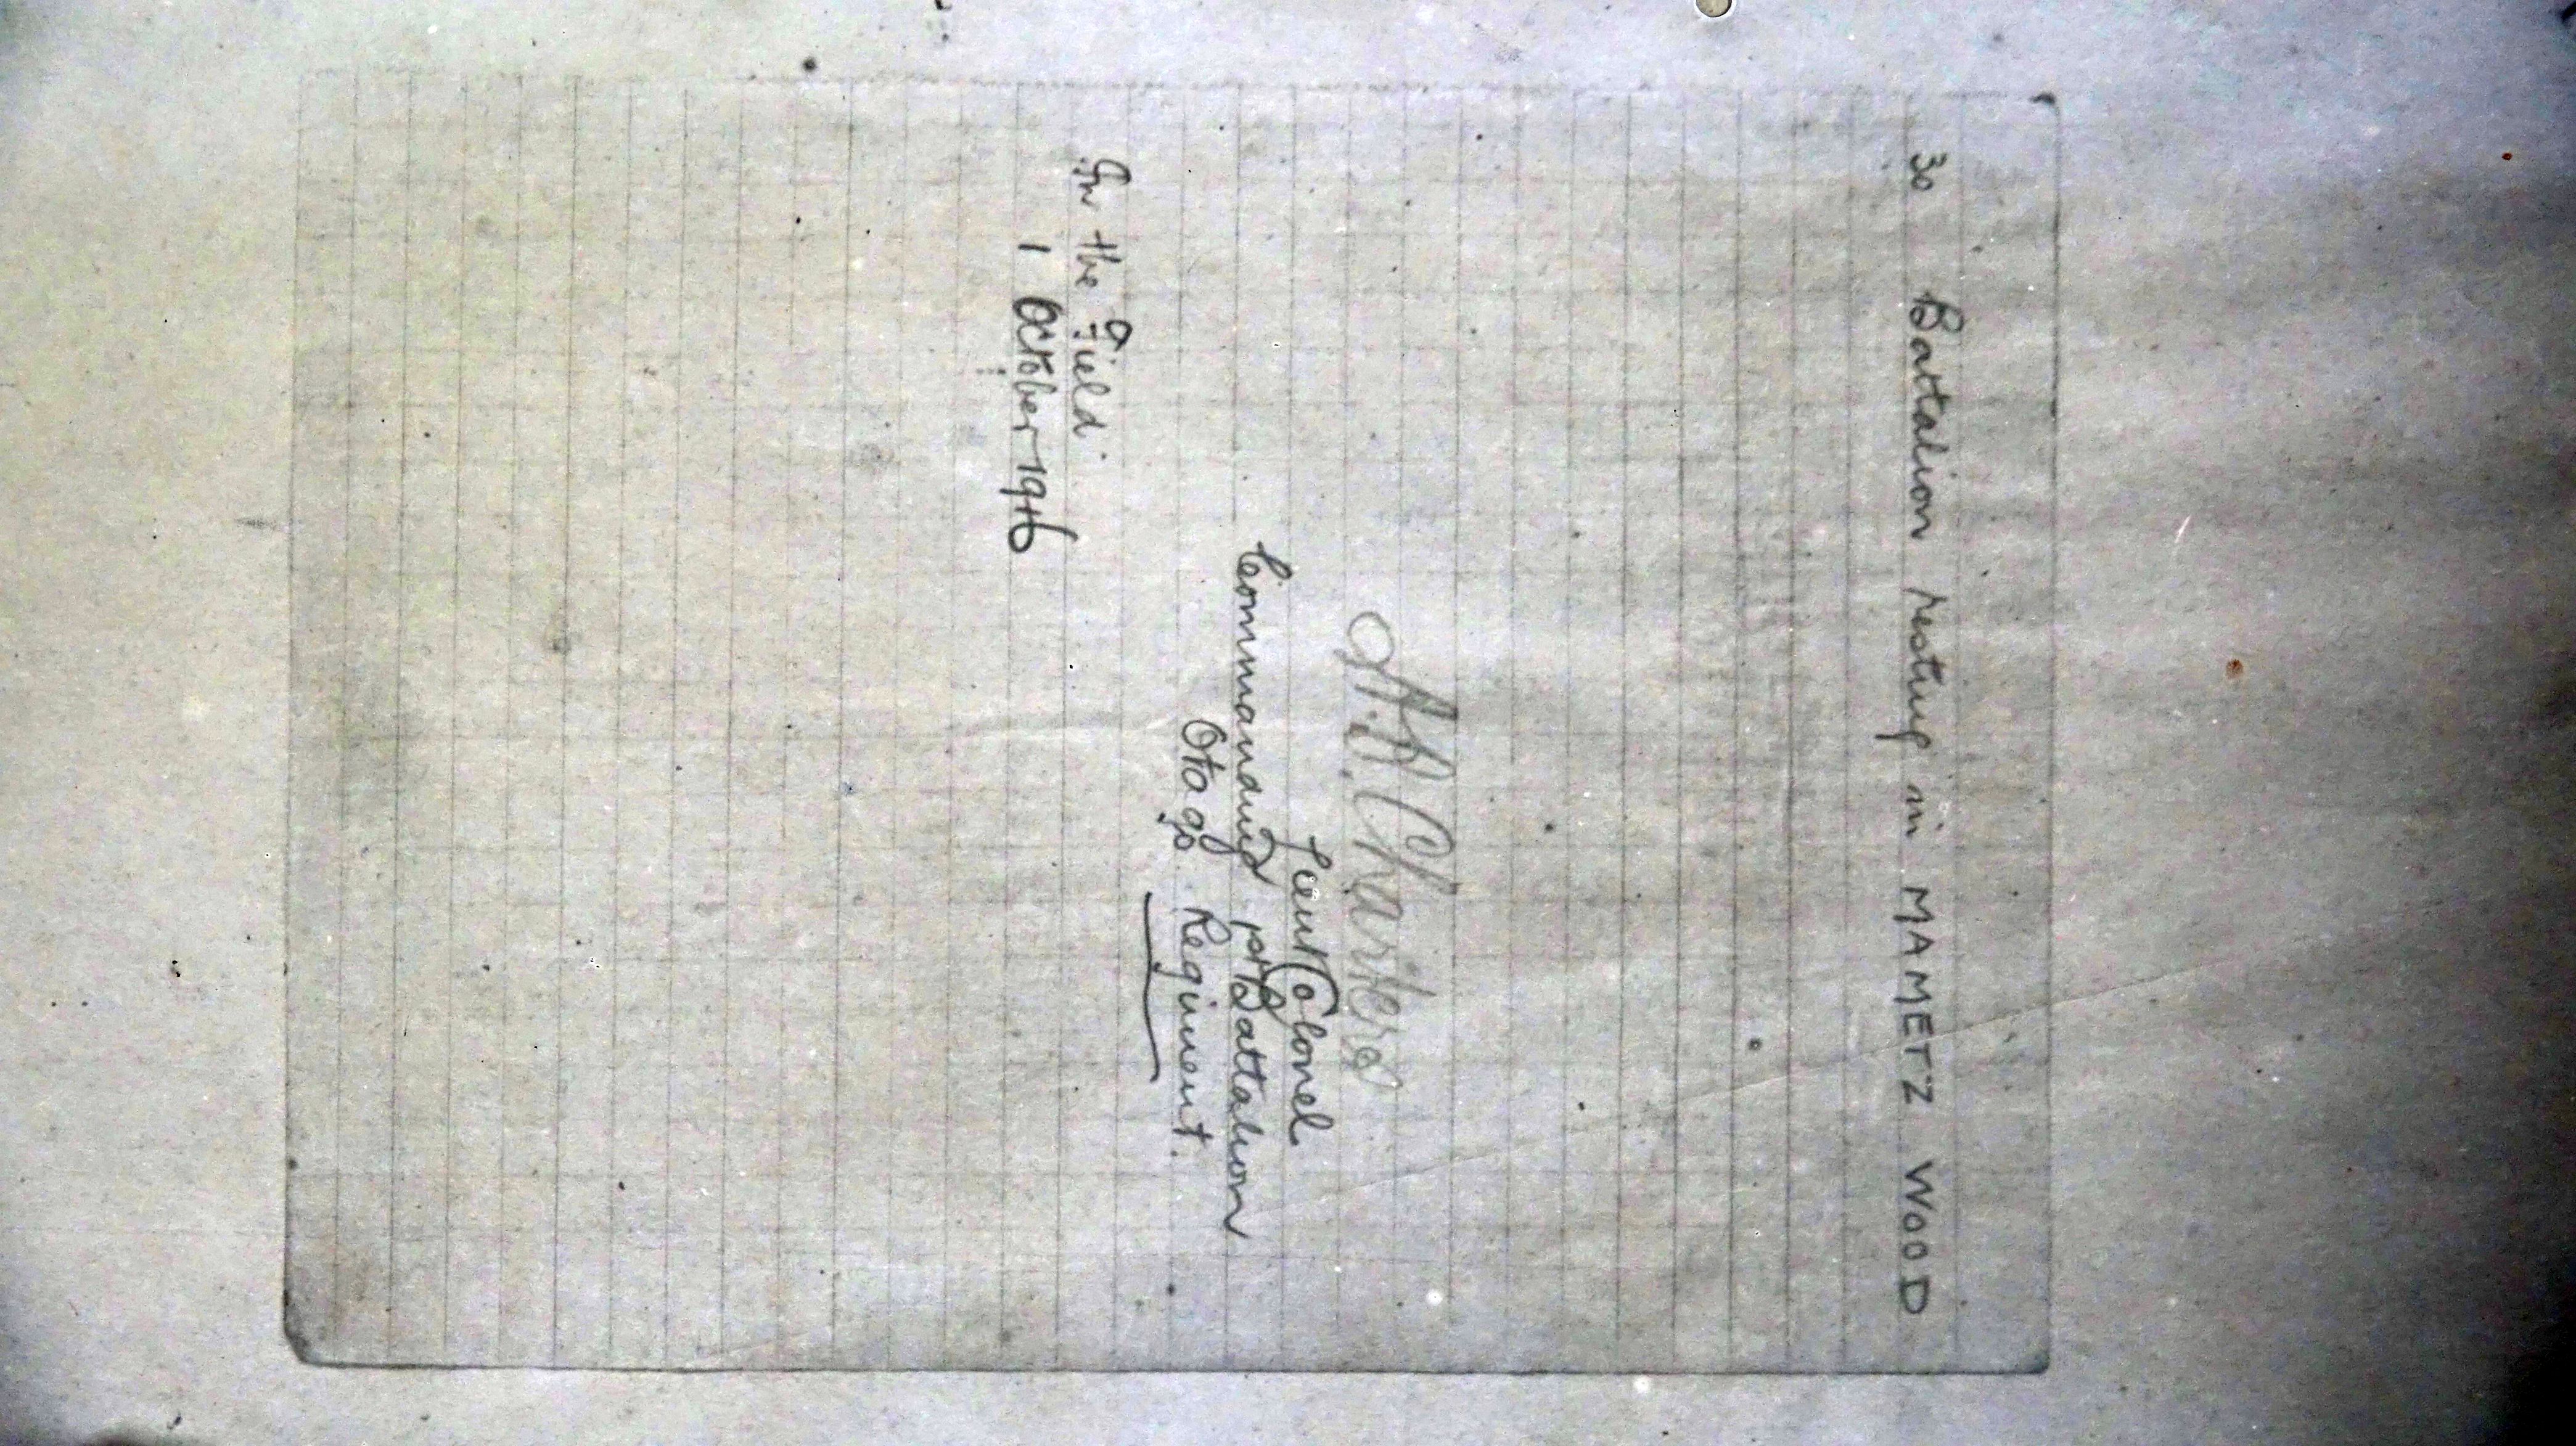 30 Battalion resting in MAMETZ WOOD
A.B. Charters
Lieut Colonel
Commanding 1st Battalion
Otago Regiment.
In the Field.
1 October 1916